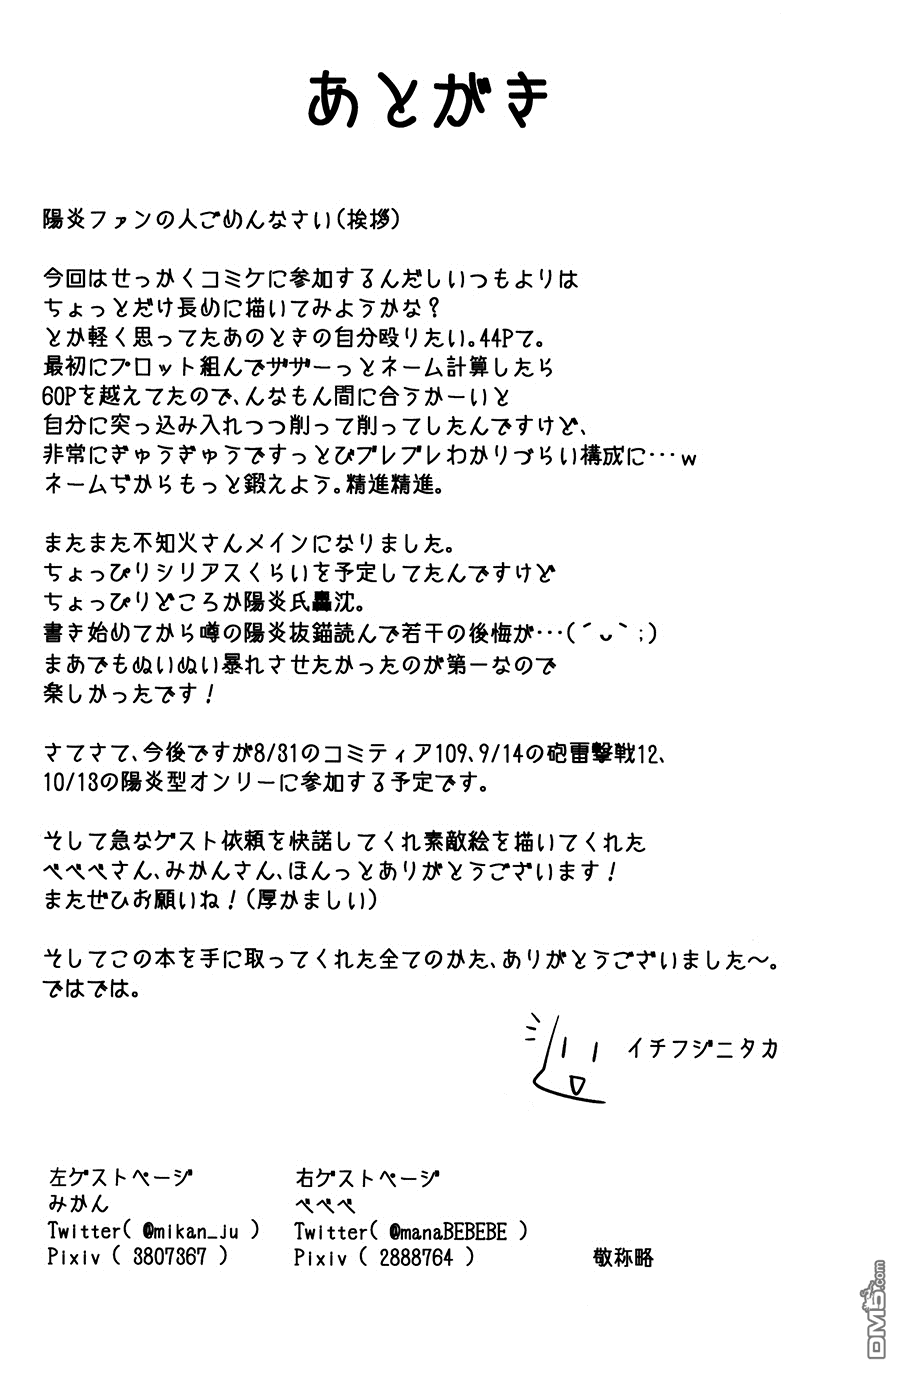 あとがき
陽炎ファンの人ごめんなさい(挨拶)
今回はせっかくコミケに参加するんだしいつもよりは
ちょっとだけ長めに描いてみようかな?
とか軽く思ってたあのときの自分殴りたい。44Pて。
最初にプロット組んでザザーっとネーム計算したら
60Pを越えてたので、んなもん間に合うかーいと
自分に突っ込み入れつつ削って削ってしたんですけど、
非常にぎゅうぎゅうですっとびブレブレわかりづらい構成に…w
ネームぢからもっと鍛えよう。精進精進。
またまた不知火さんメインになりました。
ちょっぴりシリアスくらいを予定してたんですけど
ちょっぴりどころか陽炎氏轟沈。
書き始めてから噂の陽炎抜錨読んで若干の後悔が…(´ᴗ`;)
まあでもぬいぬい暴れさせたかったのが第一なので
楽しかったです!
さてさて、今後ですが8/31のコミティア109、9/14の砲雷撃戦12、
10/13の陽炎型オンリーに参加する予定です。
そして急なゲスト依頼を快諾してくれ素敵絵を描いてくれた
べべべさん、みかんさん、ほんっとありがとうございます!
またぜひお願いね!(厚かましい)
そしてこの本を手に取ってくれた全てのかた、ありがとうございました〜。
ではでは。
イチフジニタカ
左ゲストページ
みかん
Twitter( @mikan_ju )
Pixiv ( 3807367 )
右ゲストページ
べべべ
Twitter( @manaBEBEBE )
Pixiv ( 2888764 )
敬称略
DM5.com